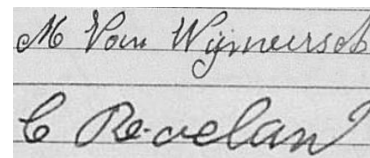 M Van Wijmeersch
C Revelan